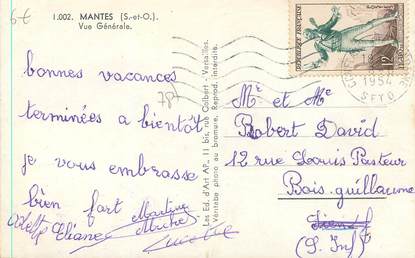 6€
1.002. MANTES (S.-et-O.).
Vue Générale.
bonnes vacances
terminées a bientôt
je vous embrasse
bien fort
Odette Eliane Martine
Michel
78
Les Ed. d'Art AP., 11 bis, rue Colbert - Versailles.
Véritable photo au bromure. Reprod. interdite.
REPUBLIQUE FRANÇAISE
12F
1954
Mr et Me
Robert David
12 rue Louis Pasteur
Bois-guillaume
(S. Inf)